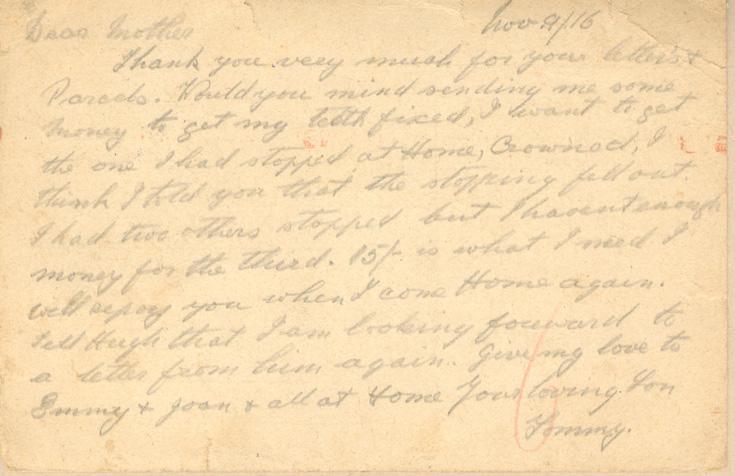 Dear Mother Nov 9/16
Thank you very much for your letters &
Parcels. Would you mind sending me some
money to get my teeth fixed, I want to get
the one I had stopped at Home, Crowned, I
think I told you that the stopping fell out.
I had two others stopped but I havent enough
money for the third. 15/- is what I need I
will repay you when I come Home again.
tell Hugh that I am looking forward to
a letter from him again. Give my love to
Emmy & Joan & all at Home Your loving Son
Tommy.